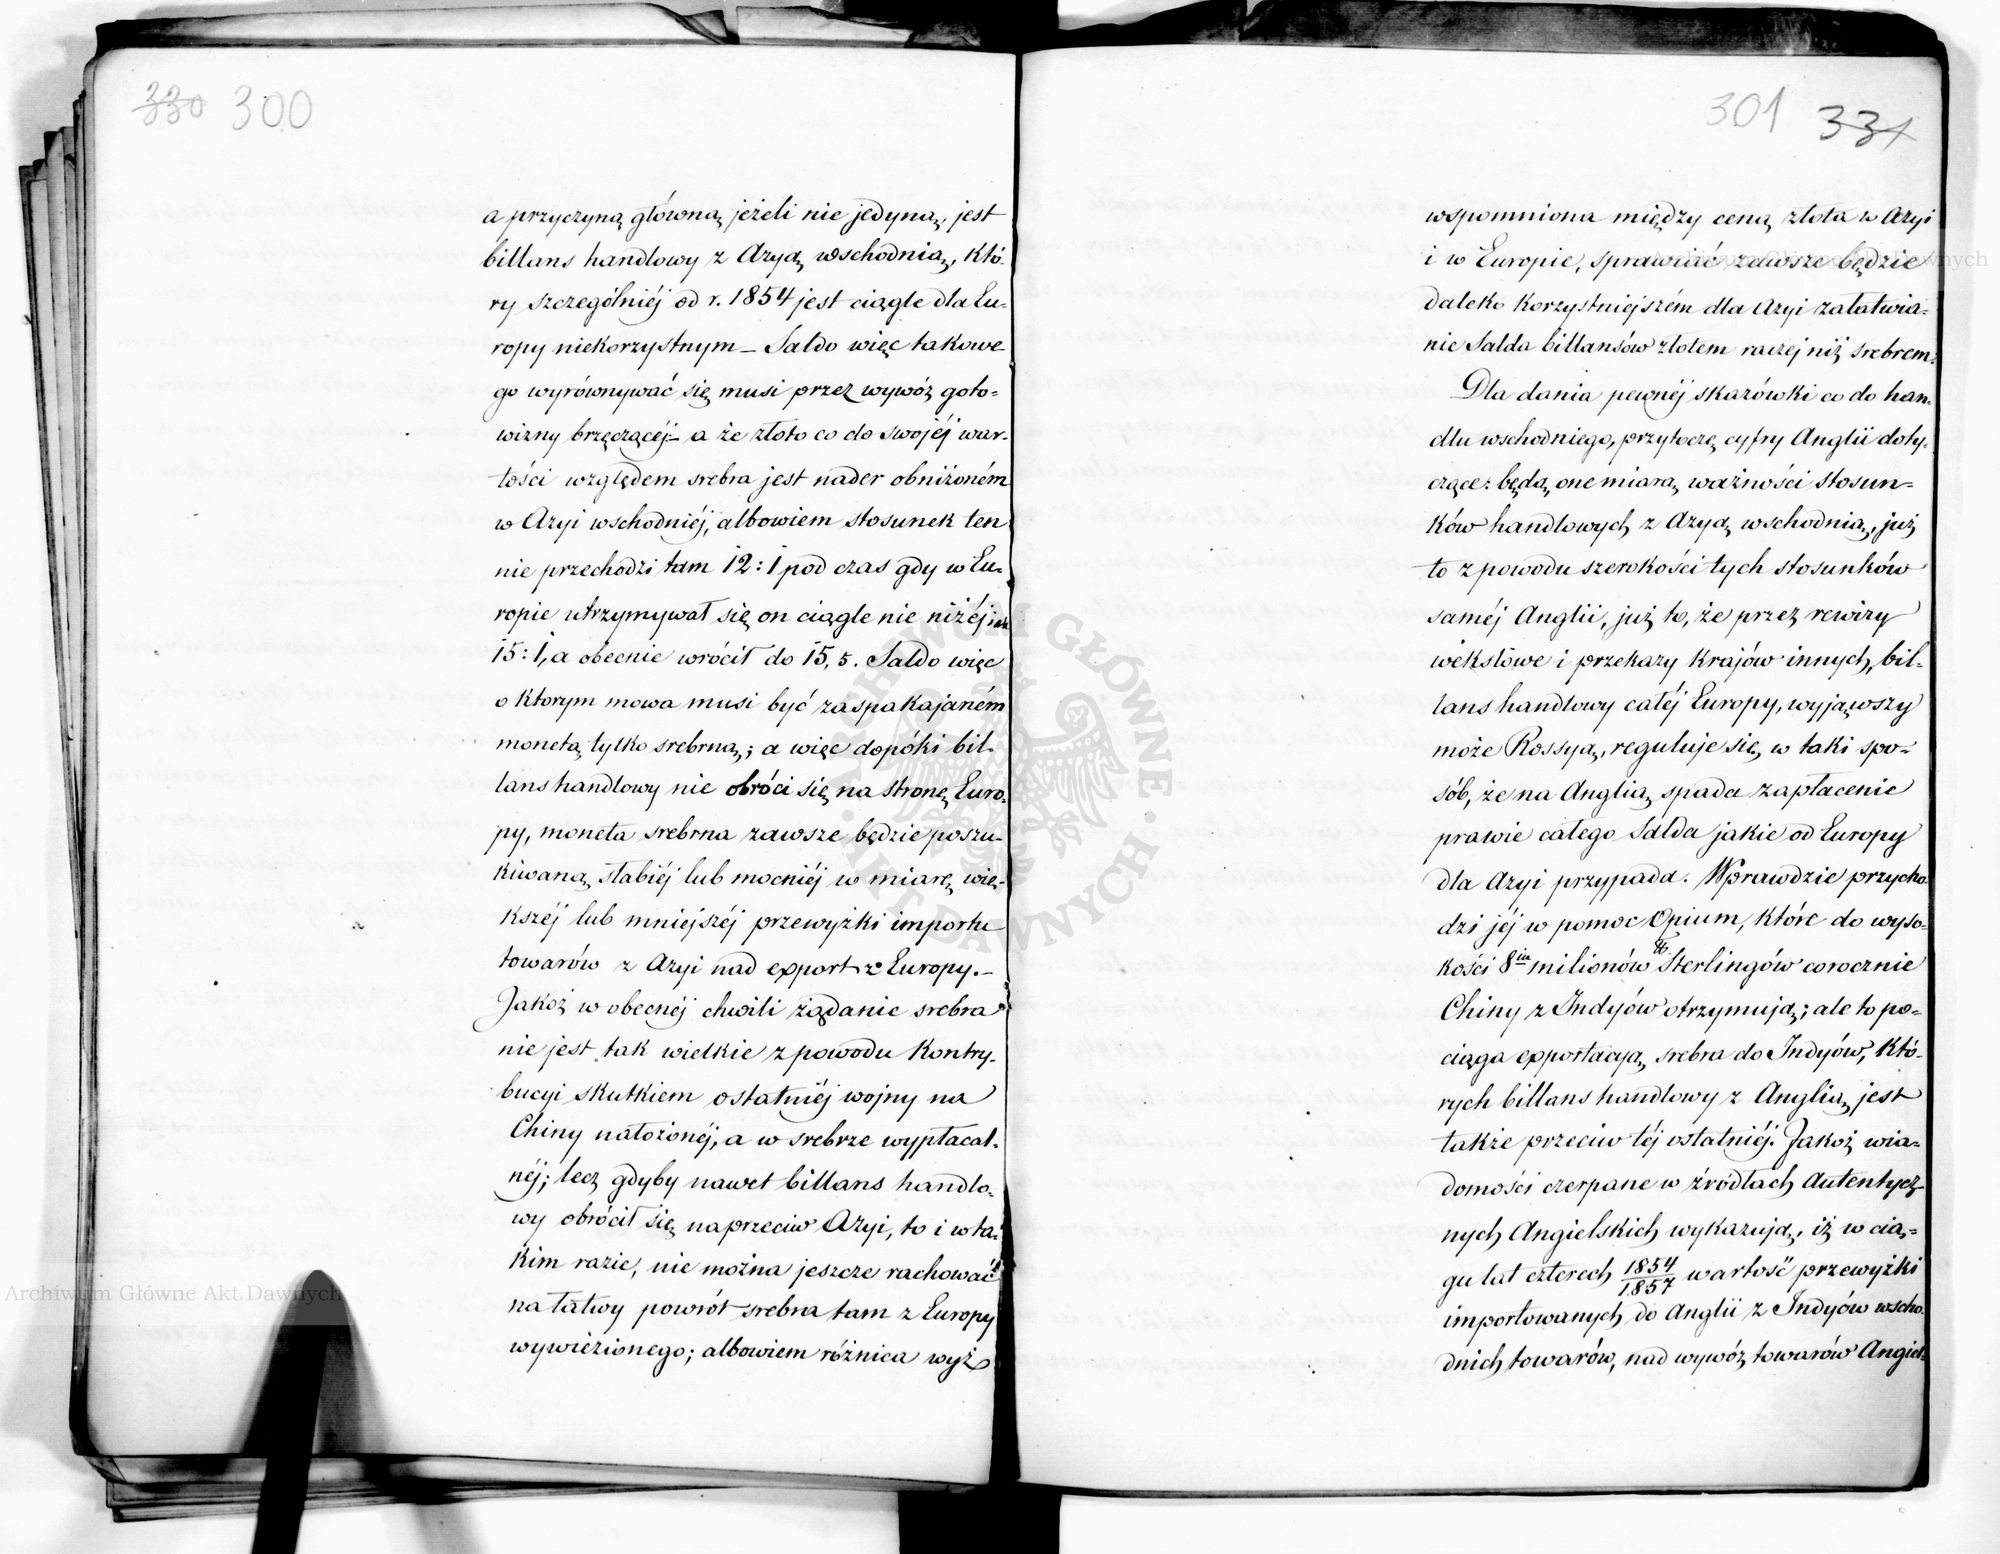 330 300
a przyczyną główną, jeżeli nie jedyną, jest
billans handlowy z Azyą wschodnią, któ-
ry szczególniéj od r. 1854 jest ciągle dla Eu-
ropy niekorzystnym – Saldo więc takowe
go wyrównywać się musi przez wywóz goto-
wizny brzęczącéj – a że złoto co do swojéj war-
tości względem srebra jest nader obniżoném
w Azyi wschodniéj, albowiem stosunek ten
nie przechodzi tam 12:1 pod czas gdy w Eu-
ropie utrzymywał się on ciągle nie niżéj jak
15:1, a obecnie wrócił do 15,5. Saldo więc
o ktorym mowa musi być zaspakajaném
monetą tylko srebrną; a więc dopóki bil-
lans handlowy nie obróci się na stronę Euro-
py, moneta srebrna zawsze będzie poszu-
kiwaną słabiéj lub mocniéj w miarę wię-
kszéj lub mniejszéj przewyżki importu
towarów z Azyi nad export z Europy. –
Jakoż w obecnéj chwili żądanie srebra
nie jest tak wielkie z powodu kontry-
bucyi skutkiem ostatniéj wojny na
Chiny nałożonéj, a w srebrze wypłacal-
néj; lecz gdyby nawet billans handlo-
wy obrócił się naprzeciw Azyi, to i w ta-
kim razie, nie można jeszcze rachować
na łatwy powrót srebra tam z Europy
wywieżionego; albowiem różnica wyż
301 331
wspomniona między ceną złota w Azyi
i w Europie, sprawiać zawsze będzie
daleko korzystniejszém dla Azyi załatwia-
nie Salda billansów złotem raczej niż srebrem.
Dla dania pewnéj skazówki co do han-
dlu wschodniego, przytoczę cyfry Anglii doty-
czące: będą one miarą ważności stosun-
ków handlowych z Azyą wschodnią, już
to z powodu szerokości tych stosunków
saméj Anglii, już to, że przez rewizy
wekslowe i przekazy krajów innych, bil-
lans handlowy całéj Europy, wyjąwszy
może Rossyą, reguluje się w taki spo-
sób, że na Anglią spada zapłacenie
prawie całego Salda jakie od Europy
dla Azyi przypada. Wprawdzie przycho-
dzi jéj w pomoc Opium, które do wyso-
kości 8iu milionów Sterlingów corocznie
Chiny z Indyów otrzymują; ale to po-
ciąga exportacyą srebra do Indyów, któ-
rych billans handlowy z Anglią jest
także przeciw téj ostatniéj. Jakoż wia-
domości czerpane w źródłach Autentycz-
nych Angielskich wykazują, iż w cią-
gu lat czterech 1854/1857 wartość przewyżki
importowanych do Anglii z Indyów wscho-
dnich towarów, nad wywóz towarów Angiel-
Archiwum Główne Akt Dawnych
Archiwum Główne Akt Dawnych
ARCHIWUM GŁÓWNE · AKT DAWNYCH ·